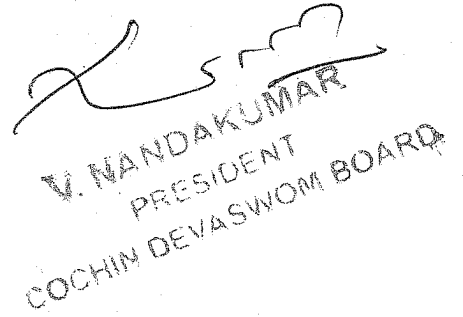 V. NANDAKUMAR
PRESIDENT
COCHIN DEVASWOM BOARD